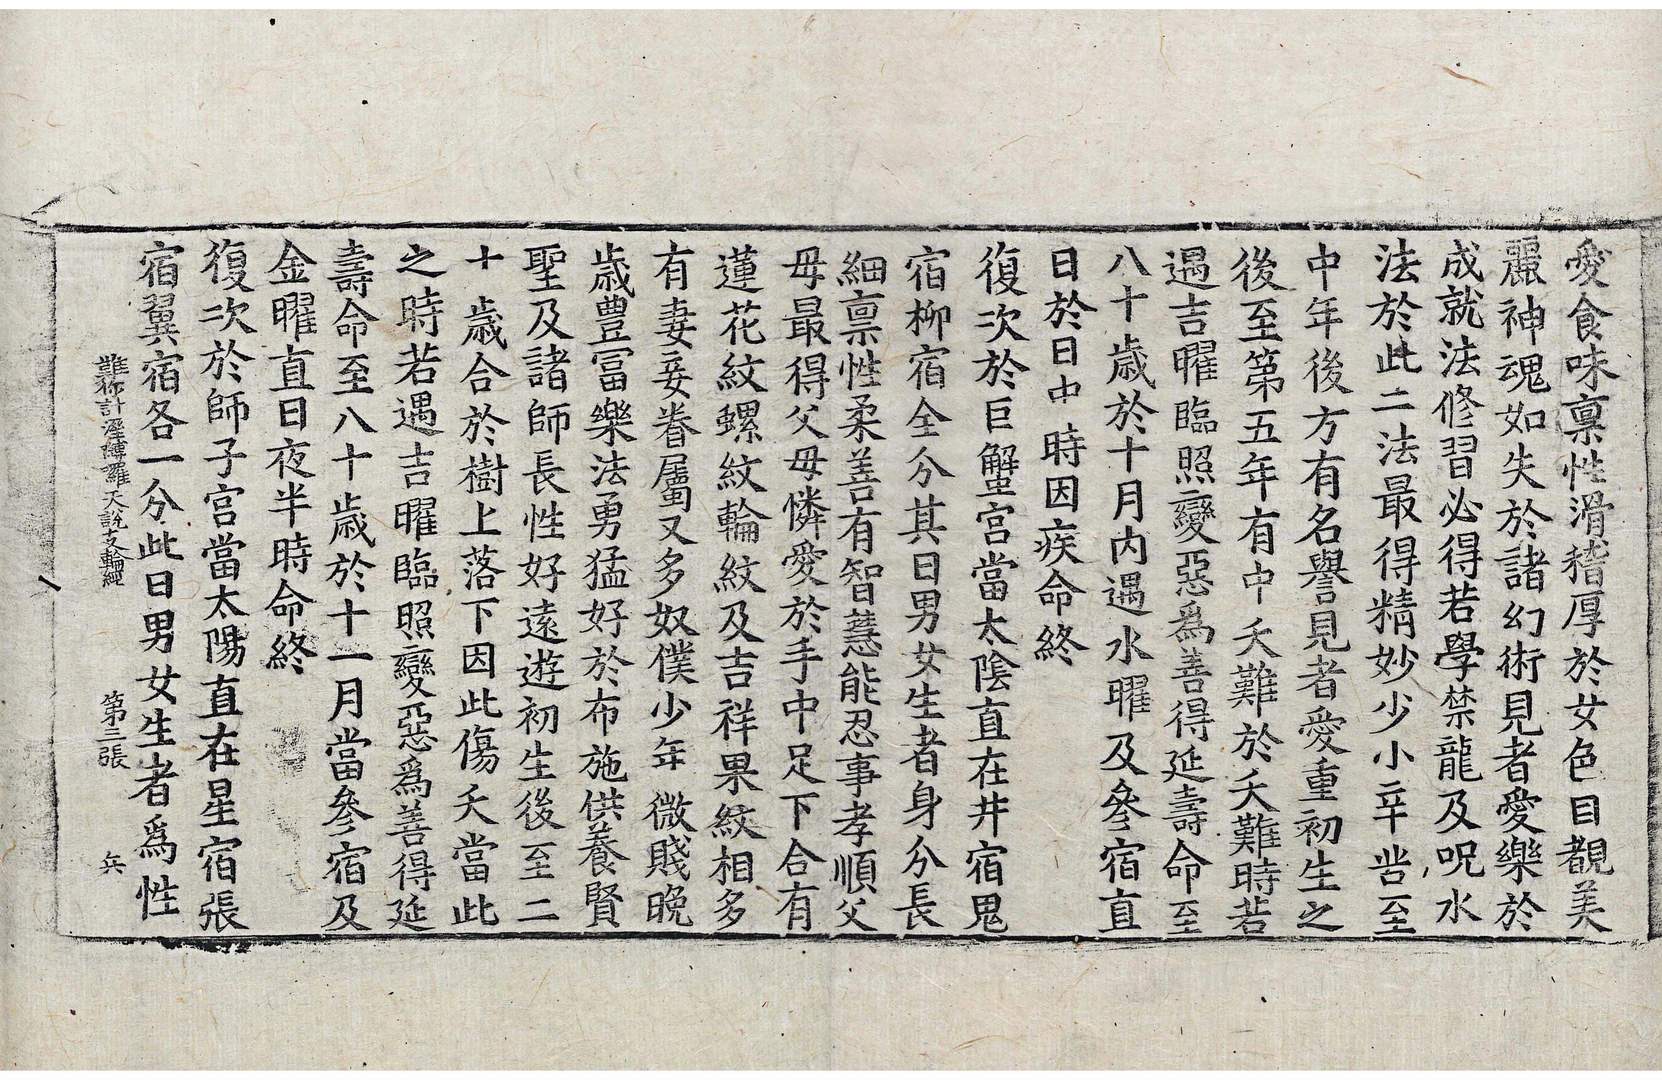 愛食味禀性滑稽厚於女色目覩美
麗神魂如失於諸幻術見者愛樂於
成就法修習必得若學禁龍及呪水
法於此二法最得精妙少小辛苦至
中年後方有名譽見者愛重初生之
後至第五年有中夭難於夭難時若
遇吉曜臨照變惡爲善得延壽命至
八十歲於十月內遇水曜及參宿直
日於日中時因疾命終
復次於巨蟹宮當太陰直在井宿鬼
宿柳宿全分其日男女生者身分長
細禀性柔善有智慧能忍事孝順父
母最得父母憐愛於手中足下合有
蓮花紋螺紋輪紋及吉祥果紋相多
有妻妾眷屬又多奴僕少年微賤晚
歲豊冨樂法勇猛好於布施供養賢
聖及諸師長性好遠遊初生後至二
十歲合於樹上落下因此傷夭當此
之時若遇吉曜臨照變惡爲善得延
壽命至八十歲於十一月當參宿及
金曜直日夜半時命終
復次於師子宮當太陽直在星宿張
宿翼宿各一分此日男女生者爲性
難你計濕嚩囉天說支輪經 第三張 兵